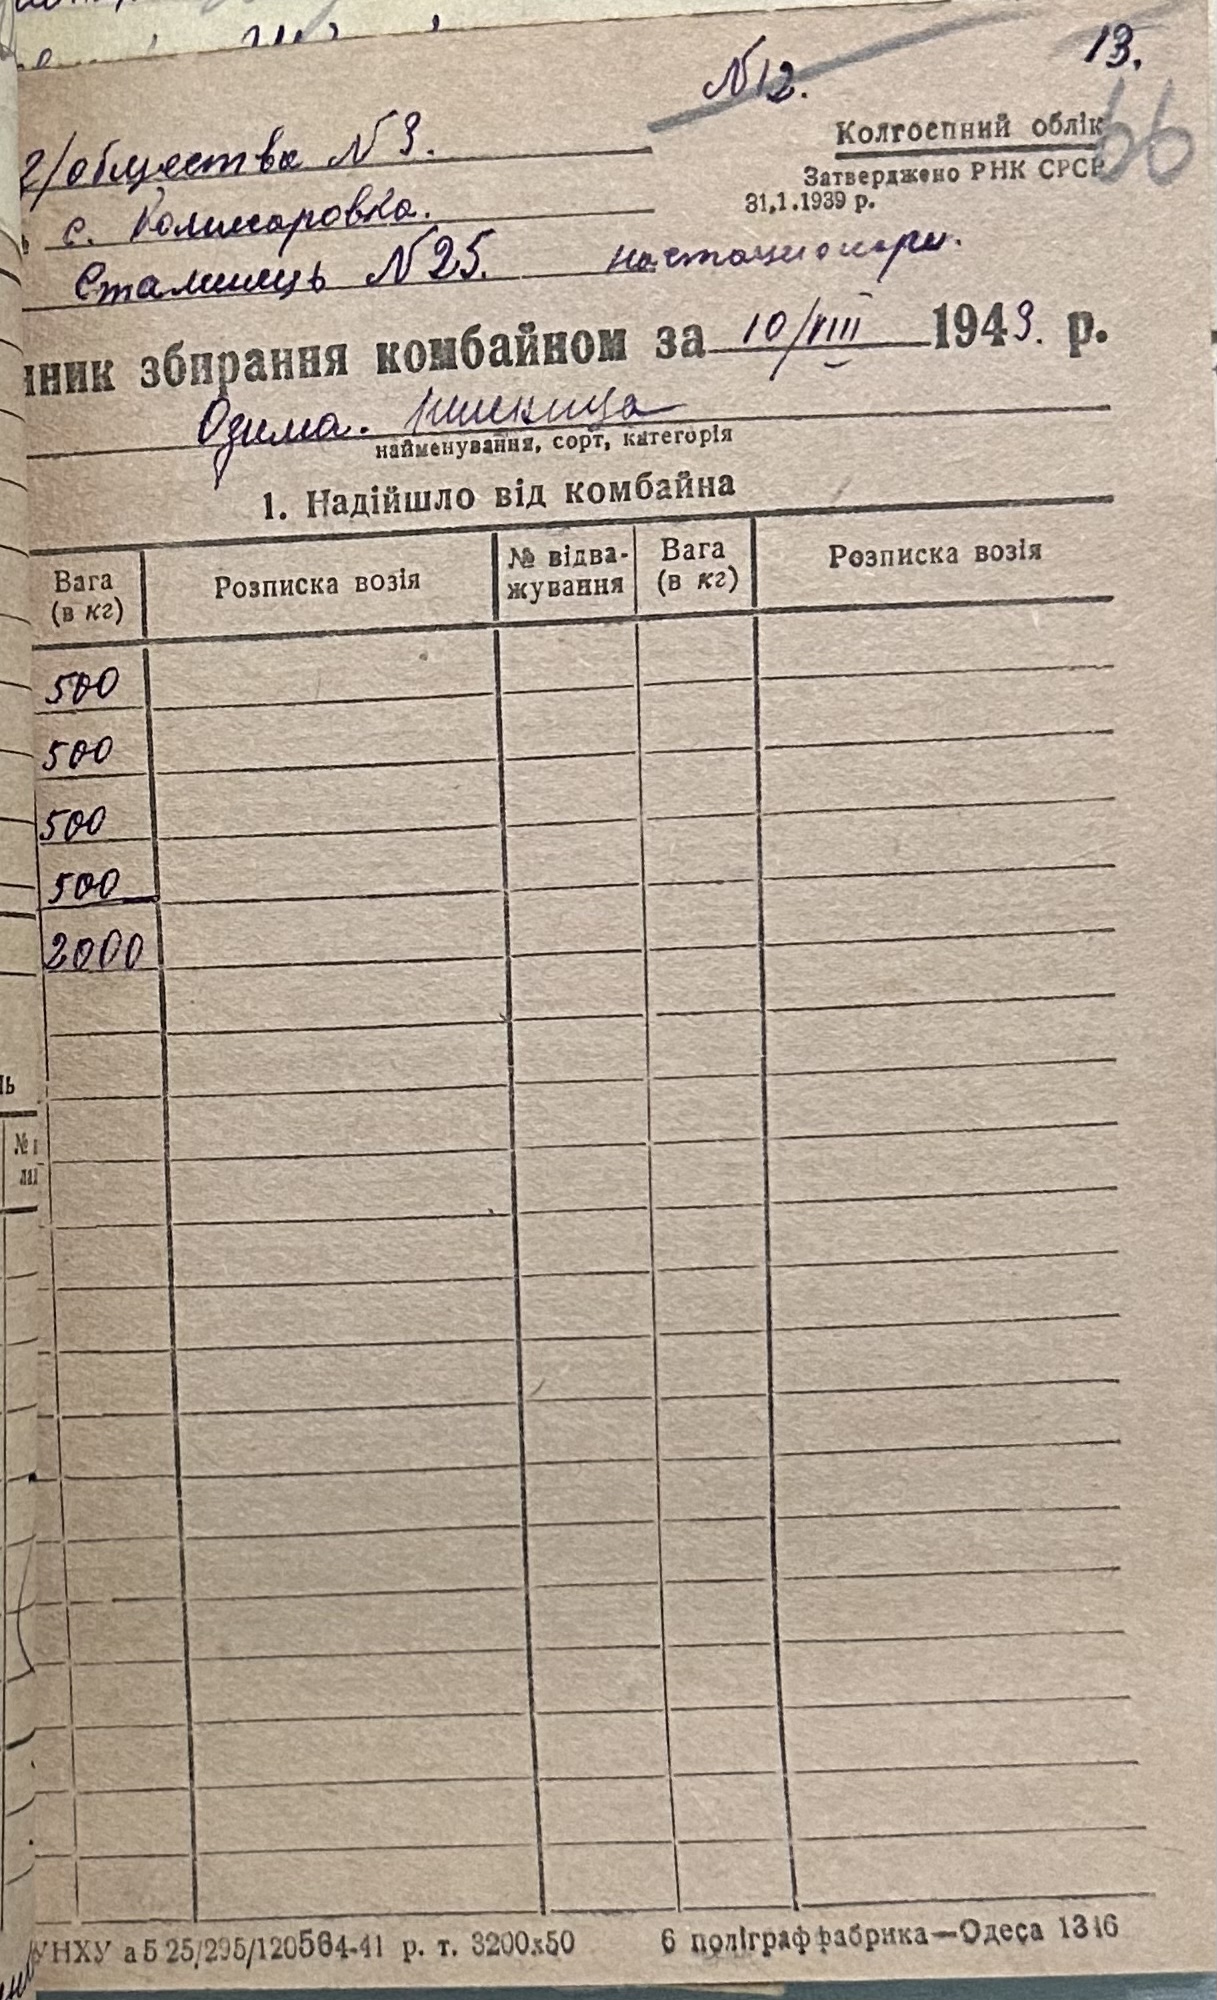 N12.
13.
66
Колгоспний облік
Затверджено РНК СРСР
31.1.1939 р.
г/общества N3.
с. Комисаровка.
Сталинець N25. на стационари.
нник збирання комбайном за 10/VIII 1943. р.
Озима. пшениця
найменування, сорт, категорія
1. Надійшло від комбайна
Вага (в кг) Розписка возія № відва-жування Вага (в кг) Розписка возія
500
500
500
500
2000
УНХУ а5 25/295/120564-41 р. т. 3200х50 6 поліграффабрика—Одеса 1346